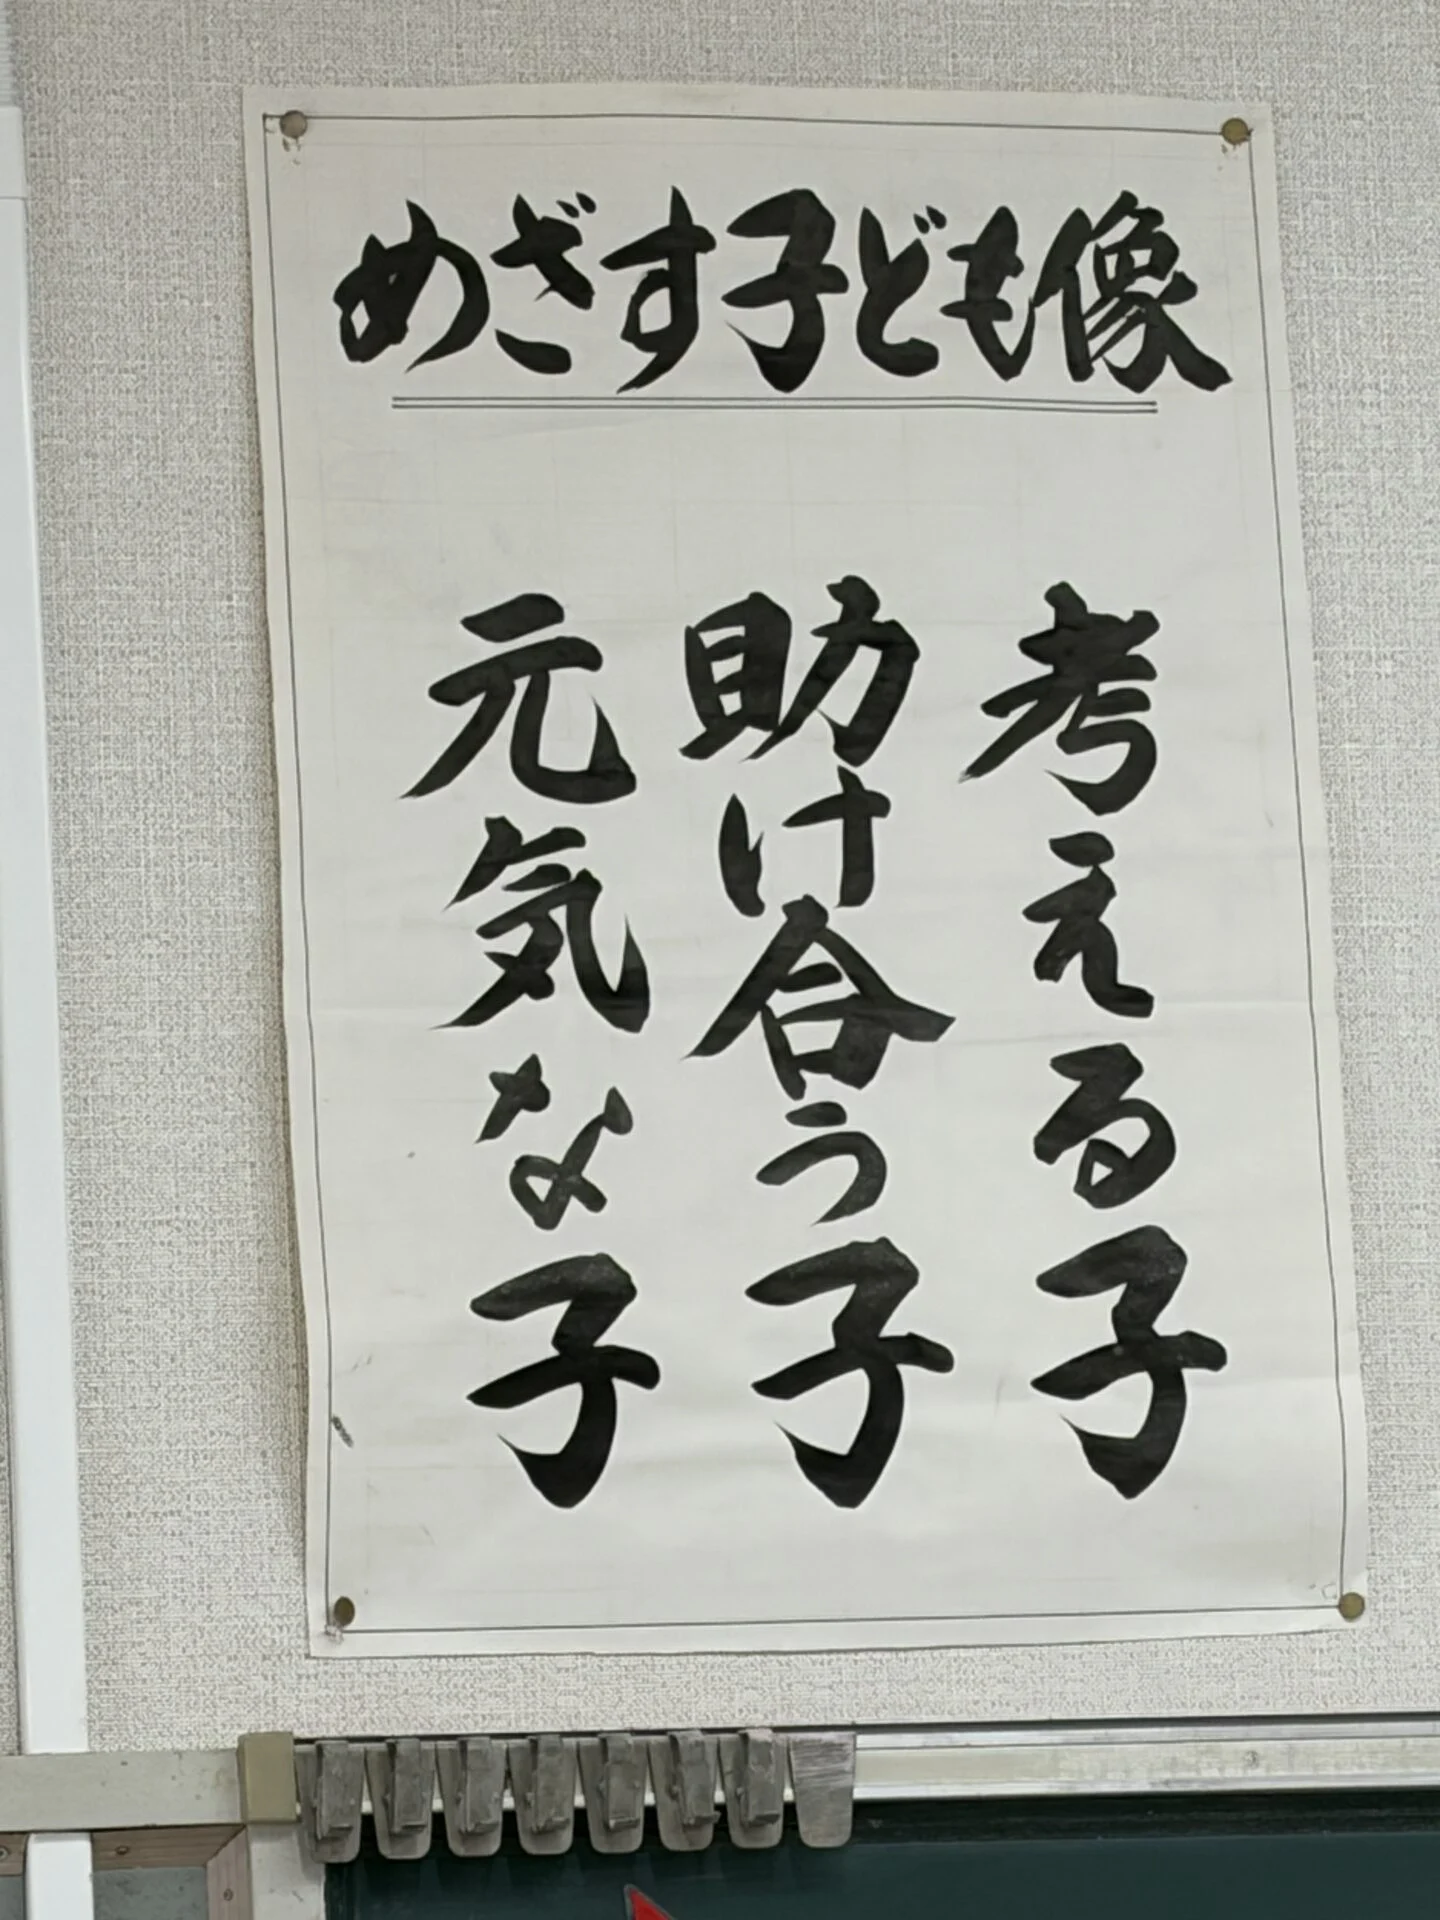 めざす子ども像
考える子
助け合う子
元気な子